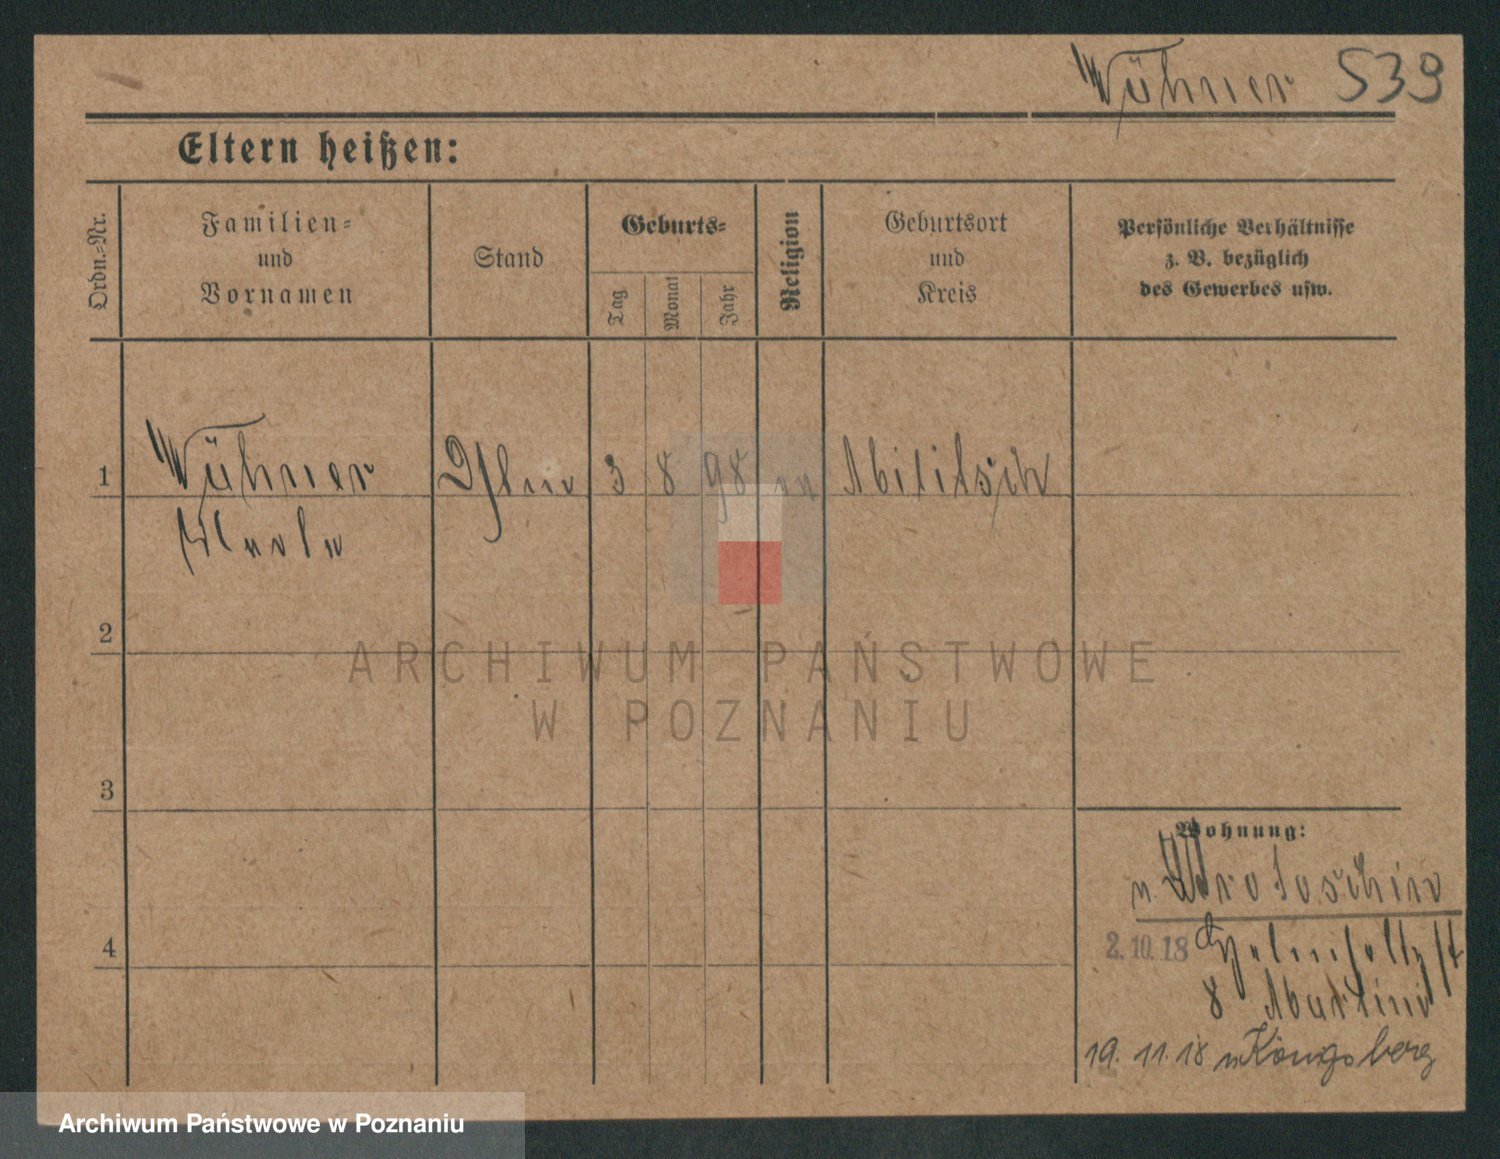 Wühner 539
Eltern heißen:
Ordn.-Nr.
Familien-
und
Vornamen
Stand
Geburts-
Tag
Monat
Jahr
Religion
Geburtsort
und
Kreis
Persönliche Verhältnisse
z. B. bezüglich
des Gewerbes usw.
1
Wühner
3 8 98
Militsch
2
3
4
Wohnung:
n. Krotoschin
2.10.18
8 Martini
19.11.18 n Königsberg
ARCHIWUM PAŃSTWOWE
W POZNANIU
Archiwum Państwowe w Poznaniu